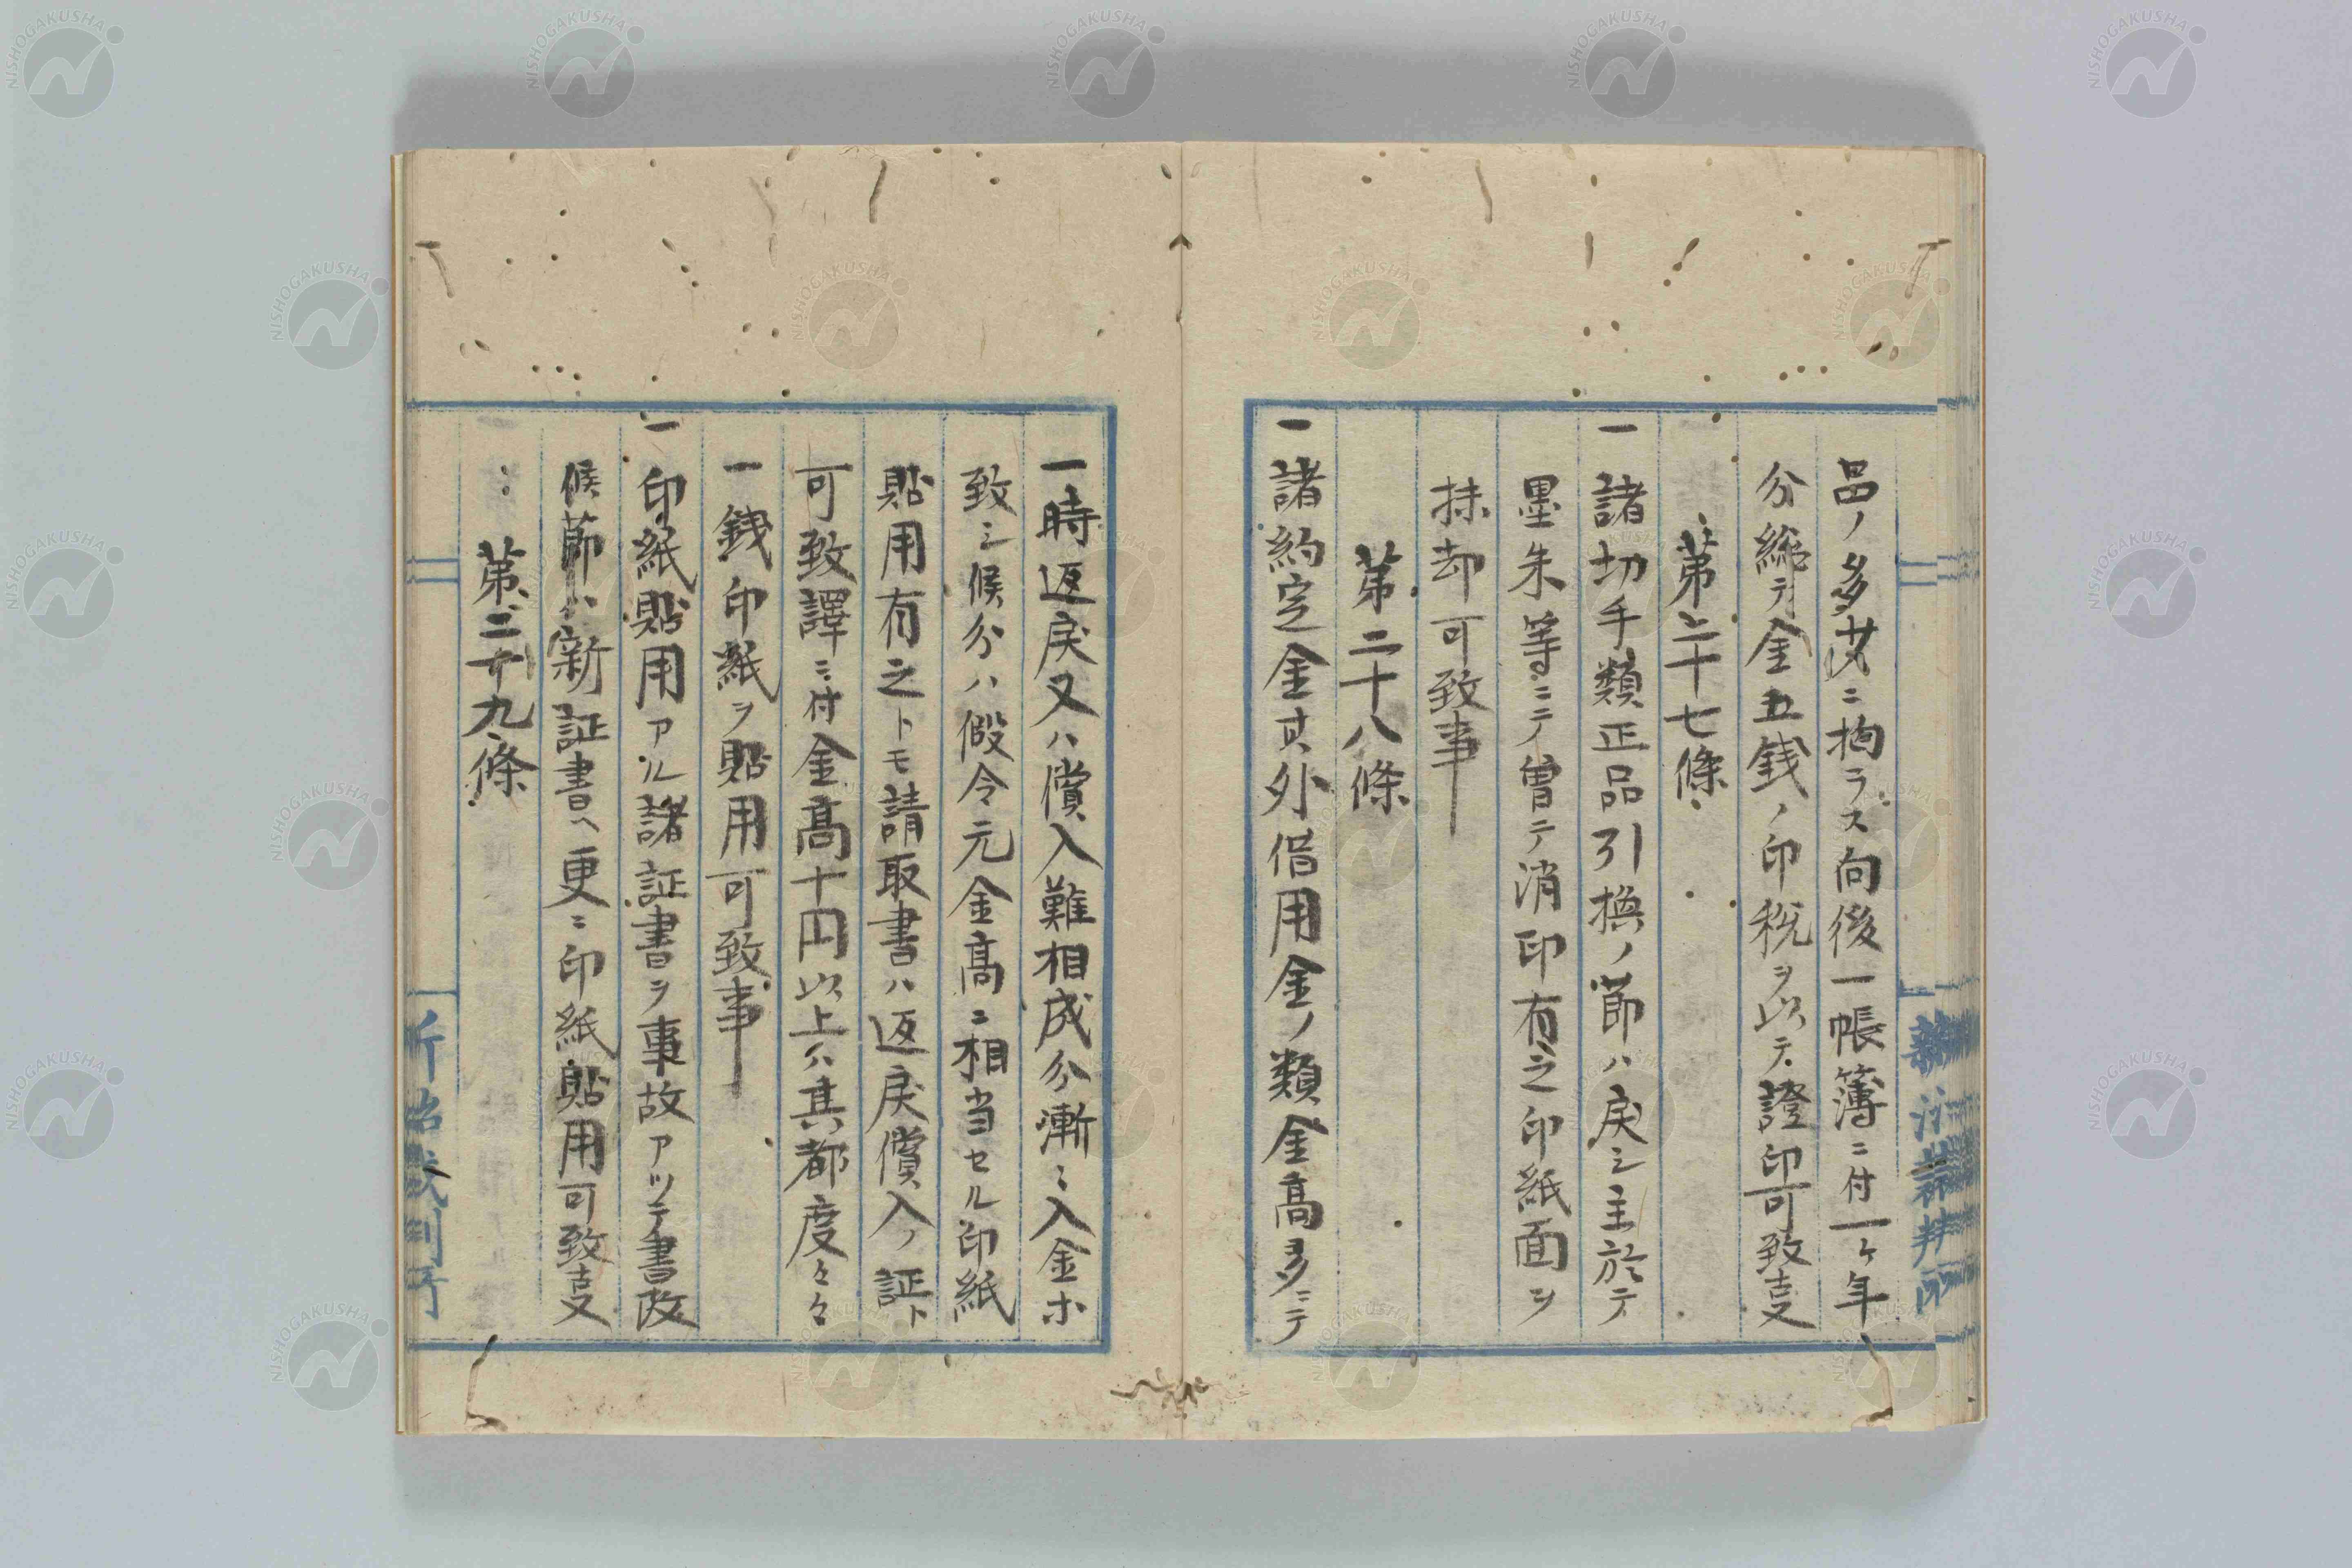 品ノ多少ニ拘ラズス向後一帳簿ニ付一ケ年
分総テ金五銭ノ印税ヲ以テ證印可致支
第二十七條
一諸切手類正品引換ノ節ハ戻シ主於テ
墨朱等ニテ曽テ消印有之印紙面ヲ
抹却可致事
第二十八條
一諸約定金其外借用金ノ類金高多ニテ
一時返戻又ハ償入難相成分漸々入金ホ
致シ候分ハ假令元金高ニ相当セル印紙
貼用有之トモ請取書ハ返戻償入ノ証ト
可致譯ニ付金高十円以上ハ其都度々々
一銭印紙ヲ貼用可致事
一印紙貼用アル諸証書ヲ事故アツテ書改
候節ハ新証書ヘ更ニ印紙貼用可致支
第二十九條
NISHOGAKUSHA